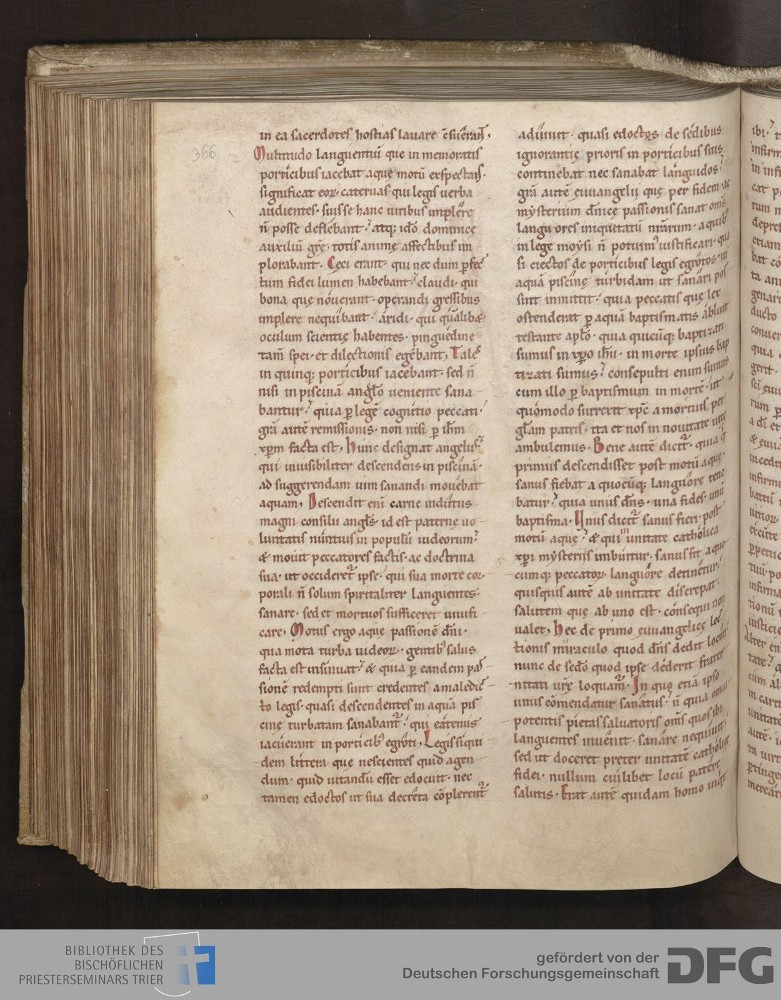 366
in ea sacerdotes hostias lavare
Multitudo languentiū que in memoratis
porticibus iacebat aque motū exspectans.
significat eoꝝ catervas qui legis verba
audientes. suis se hanc viribus implere
n̄ posse deflebant. atq; ido dominice
auxiliū grē. totis anime affectibus im
plorabant. Ceci erant. qui nec dum ꝑfec
tum fidei lumen habebant. claudi. qui
bona que noverant. operandi gressibus
implere nequibant. aridi. qui qualibꝫ
oculum scientie habentes. pinguedine
tam̄ spei. et dilectionis egebant. Tales
in quinq; porticibus iacebant. sed n̄
nisi in piscinā anglo veniente sana
bantur. quia ꝑ legē cognitio peccati.
gr̄a autē remissionis. non nisi ꝑ ih̄m
xp̄m facta est. Hunc designat angelus.
qui invisibiliter descendens in piscinā.
ad suggerendam vim sanandi movebat
aquam. Descendit eni carne indutus
magni consilii angls. id est paterne vo
luntatis nuntius in populū iudeorum.
& movit peccatores factis. ac doctrina
sua. ut occideret ipse. qui sua morte cor
porali n̄ solum spiritaliter languentes.
sanare. sed et mortuos sufficeret vivifi
care. Motus ergo aque passionē dn̄i.
qua mota turba iudeoꝝ. gentibꝰ salus
facta est insinuat. & quia ꝑ eandem pas
sionē redempti sunt credentes a maledic
to legis. quasi descendentes in aquā pis
cine turbatam sanabant. qui eatenus
iacuerant in porticibꝰ egroti. Legis siqui
dem littera que nescientes quid agen
dum. quid vitandū esset edocuit. nec
tamen edoctos ut sua decreta cōplerent
adiuvit. quasi edoctos de sedibus
ignorantie prioris in porticibus suis
continebat nec sanabat languidos.
gr̄a autē euuangelii que per fidem ac
mysterium dn̄ice passionis sanat om̄s
languores iniquitatū nr̄arum. a quibꝰ
in lege moysi n̄ potuimꝰ iustificari. qua
si eiectos de porticibus legis egrotos. in
aquā piscine turbidam ut sanari pos
sint inmittit. quia peccatis que lex
ostenderat ꝑ aquā baptismatis abluit
testante aplo. quia quicūq; baptizati
sumus in xp̄o ih̄u. in morte ipsius bap
tizati sumus. consepulti enim sumus
cum illo ꝑ baptismum in mortē. ut
quomodo surrexit xp̄c a mortuis. per
gl̄am patris. ita et nos in novitate vite
ambulemus. Bene autē dicit. quia q
primus descendisset post motū aque.
sanus fiebat a quocūq; languore tene
batur. quia unus dn̄s. una fides. unū
baptisma. Unus dicit sanus fieri post
motū aque. & qui in unitate catholica
xp̄i mysteriis imbuitur. sanus fit a quo
cumq; peccatoꝝ languore detinetur.
quisquis autē ab unitate discrepat.
salutem que ab uno est. consequi non
valet. Hec de primo euuangelice lec
tionis miraculo quod dn̄s dedit locuti
nunc de sedo quod ipse dederit frater
nitati vr̄e loquam. In quo etiā ipso
unus cōmendatur sanatus. n̄ quia omni
potentis pietas salvatoris om̄s quos ibi
languentes invenit. sanare nequivit.
sed ut doceret preter unitatē catholice
fidei. nullum cuilibet locū patere
salutis. Erat autē quidam homo
BIBLIOTHEK DES
BISCHÖFLICHEN
PRIESTERSEMINARS TRIER
gefördert von der
Deutschen Forschungsgemeinschaft
DFG